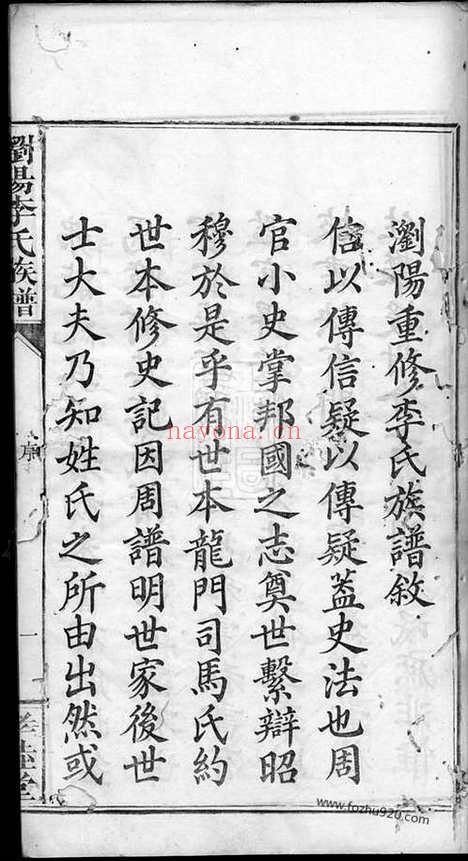 瀏陽重修李氏族譜敘
信以傳信疑以傳疑蓋史法也周
官小史掌邦國之志奠世繫辯昭
穆於是乎有世本龍門司馬氏約
世本修史記因周譜明世家後世
士大夫乃知姓氏之所由出然或
瀏陽李氏族譜
一
nayona.cn
www.fozhu920.com